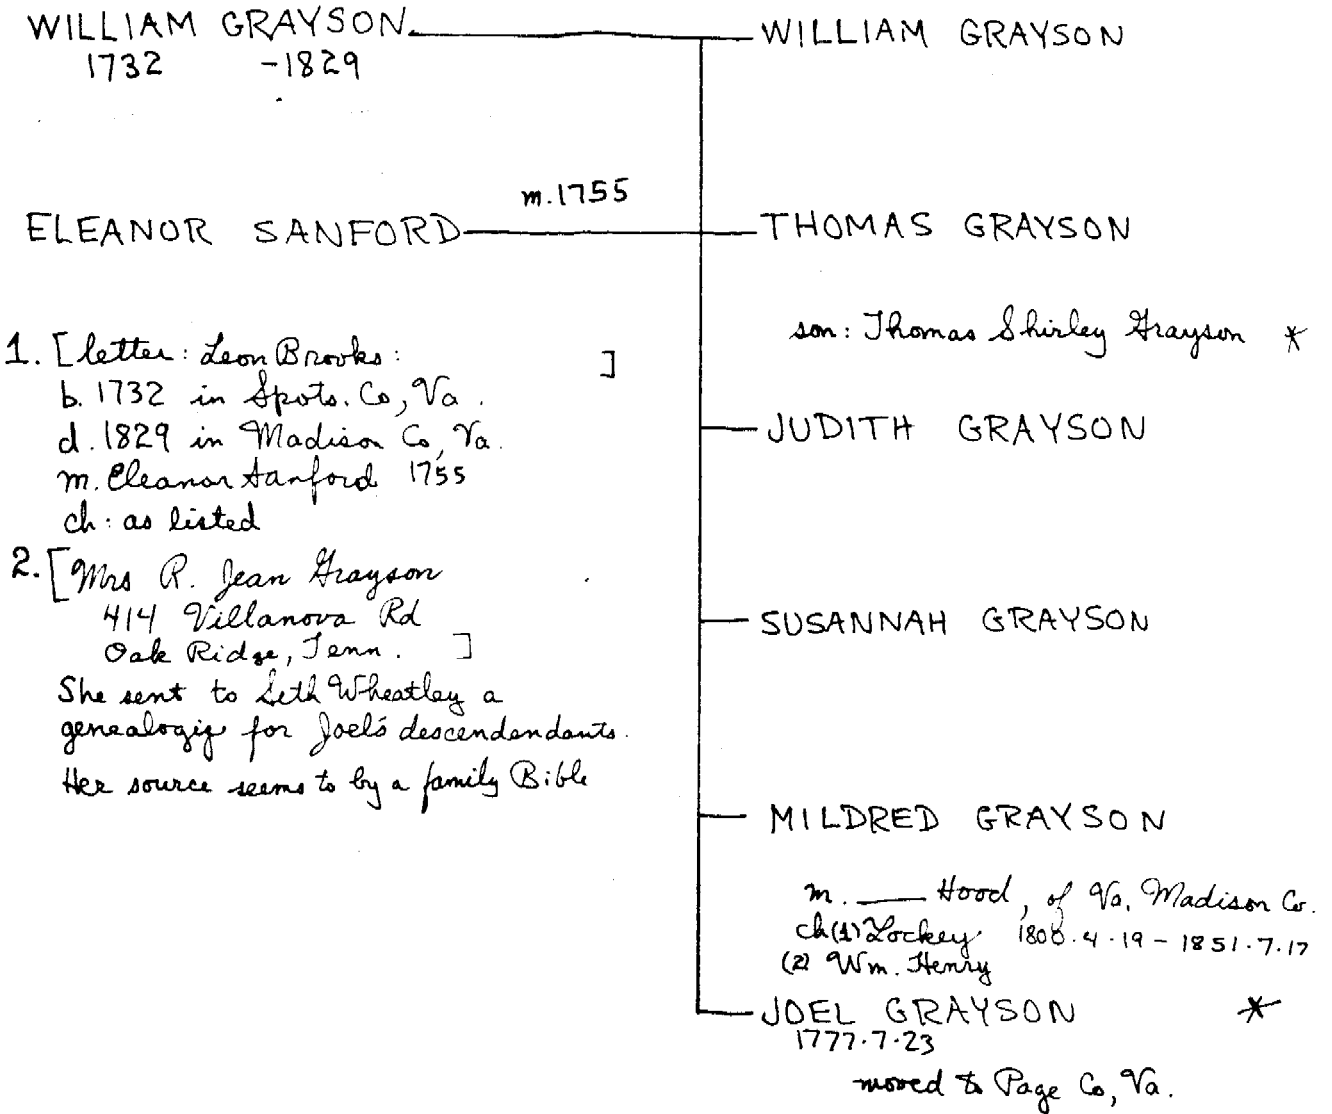 WILLIAM GRAYSON
1732 -1829
ELEANOR SANFORD
m. 1755
1. [letter: Leon Brooks: ]
b. 1732 in Spots. Co, Va.
d. 1829 in Madison Co, Va.
m. Eleanor Sanford 1755
ch: as listed
2. [Mrs R. Jean Grayson
414 Villanova Rd
Oak Ridge, Tenn. ]
She sent to Seth Wheatley a
for Joel's descendendants.
Her source seems to by a family Bible
WILLIAM GRAYSON
THOMAS GRAYSON
son: Thomas Shirley Grayson *
JUDITH GRAYSON
SUSANNAH GRAYSON
MILDRED GRAYSON
m. —— Hood, of Va, Madison Co.
ch (1) Lockey 4.19 - 1851.7.17
(2) Wm. Henry
JOEL GRAYSON *
1777.7.23
moved to Page Co, Va.